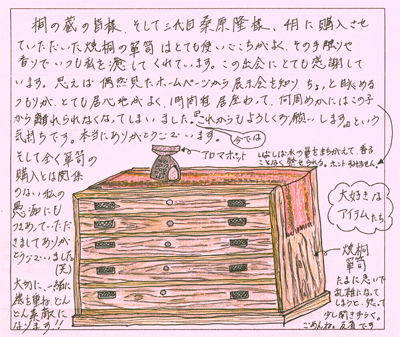 桐の蔵の皆様、そして三代目桑原隆様、4月に購入させ
ていただいた焼桐の箪笥はとても使いごこちがよく、その手触りや
香りでいつも私を癒してくれています。この出会にとても感謝して
います。思えば偶然見たホームページから展示会を知り ちょっと眺める
つもりが、とても居心地がよく、1時間程居座わって、何周めかにはこの子
から離れられなくなってしまいました。これからもよろしくお願いします。という
気持ちです。本当にありがとうございます。
今では
そして全く箪笥の
購入とは関係
のない私の
悪
つきあっていただ
きましてありが
とうございました
(笑)
大切に、一緒に
歳を重ね、どんどん
素敵に
なります!!
アロマポット
しばしば水の量をまちがえて、香る
ことなく
ポットすみません
大好きな
アイテムたち
焼桐
箪笥
たまに急いで
乱雑になって
しまうと、怒って
少し開きづらく。
ごめんね。反省です